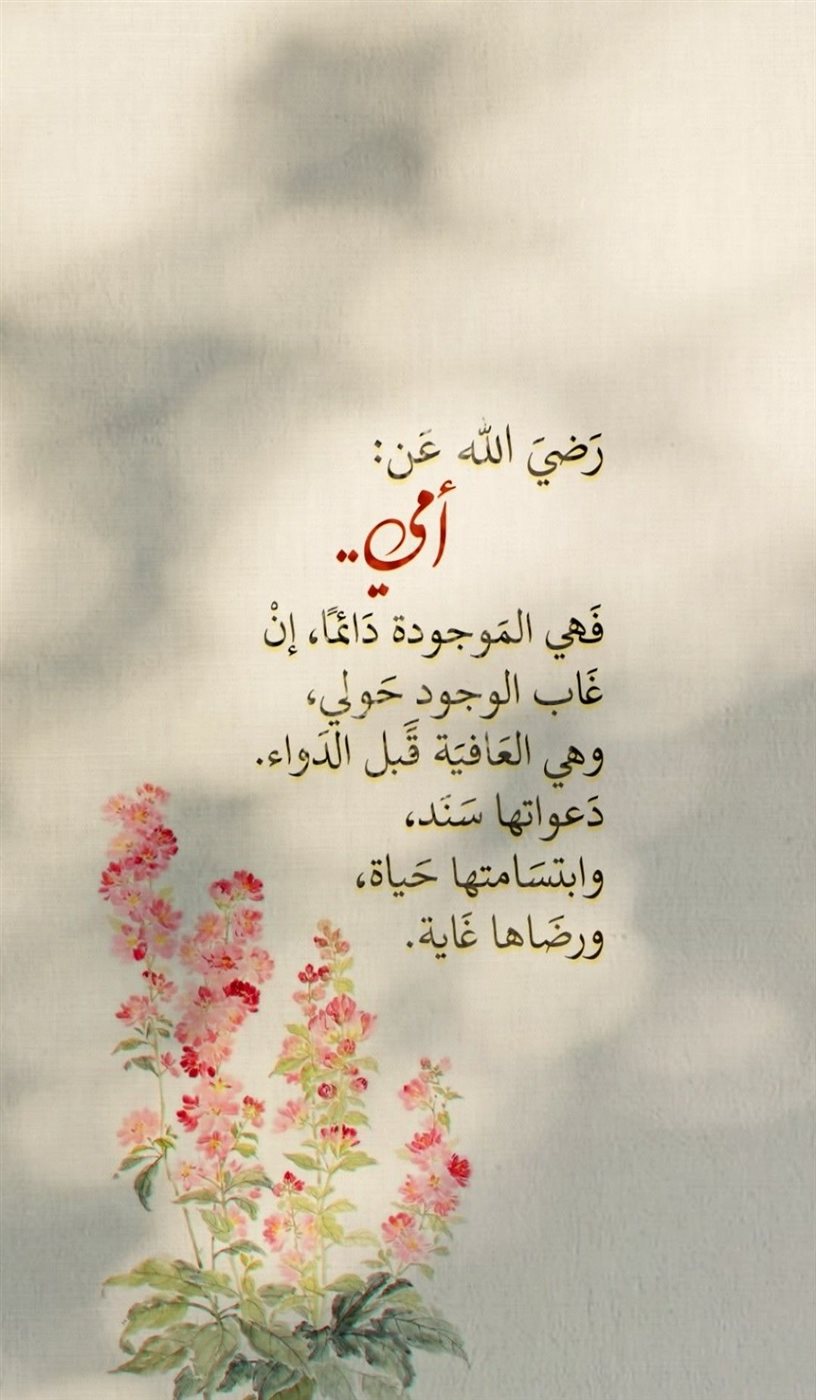 رَضيَ الله عَن:
أمي..
فَهي المَوجودة دَائمًا، إنْ
غَاب الوجود حَولي،
وهي العَافيَة قََبل الدَواء.
دَعواتها سَنَد،
وابتسَامتها حَياة،
ورضَاها غَاية.